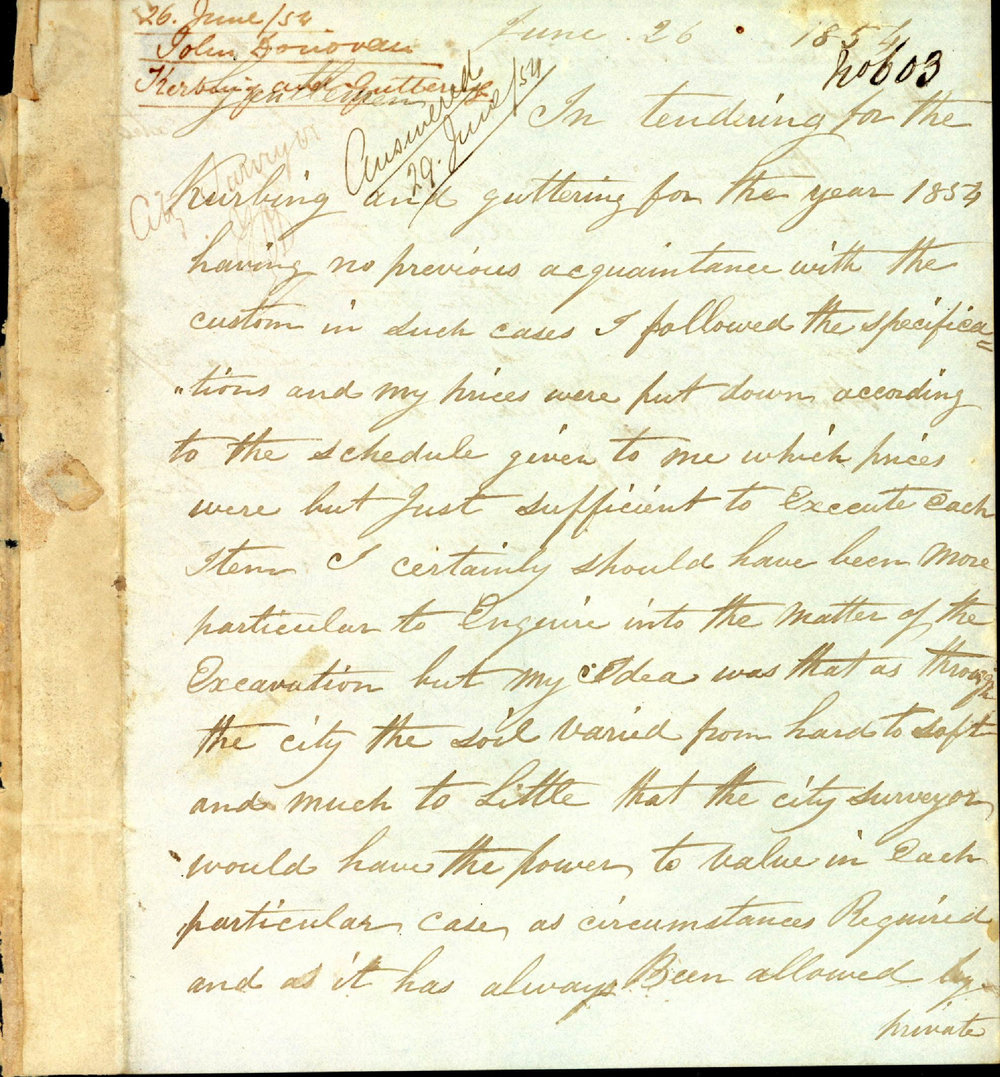 26. June/54
John Donovan
Kerbing and Guttering
June 26 1854
No 603
Gentlemen
Answered
29. June/54
City Surveyor
In tendering for the
Kurbing and guttering for the year 1854
having no previous acquaintance with the
custom in such cases I followed the specifica=
"tions and my prices were put down according
to the schedule given to me which prices
were but Just sufficient to Execute Each
Item I certainly should have been More
particular to Enquire into the Matter of the
Excavation but My Idea was that as through
the city the soil varied from hard to soft
and much to Little that the city surveyor
would have the power to value in Each
particular case as circumstances Required
and as it has always Been allowed by
private